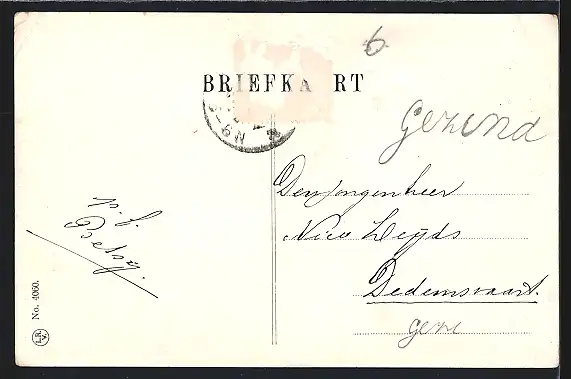 6
BRIEFKA RT
Gezind
Den Jongenheer
Nico Leijds
Dedemsvaart.
geze
p.f.
Betsy.
No. 4060.